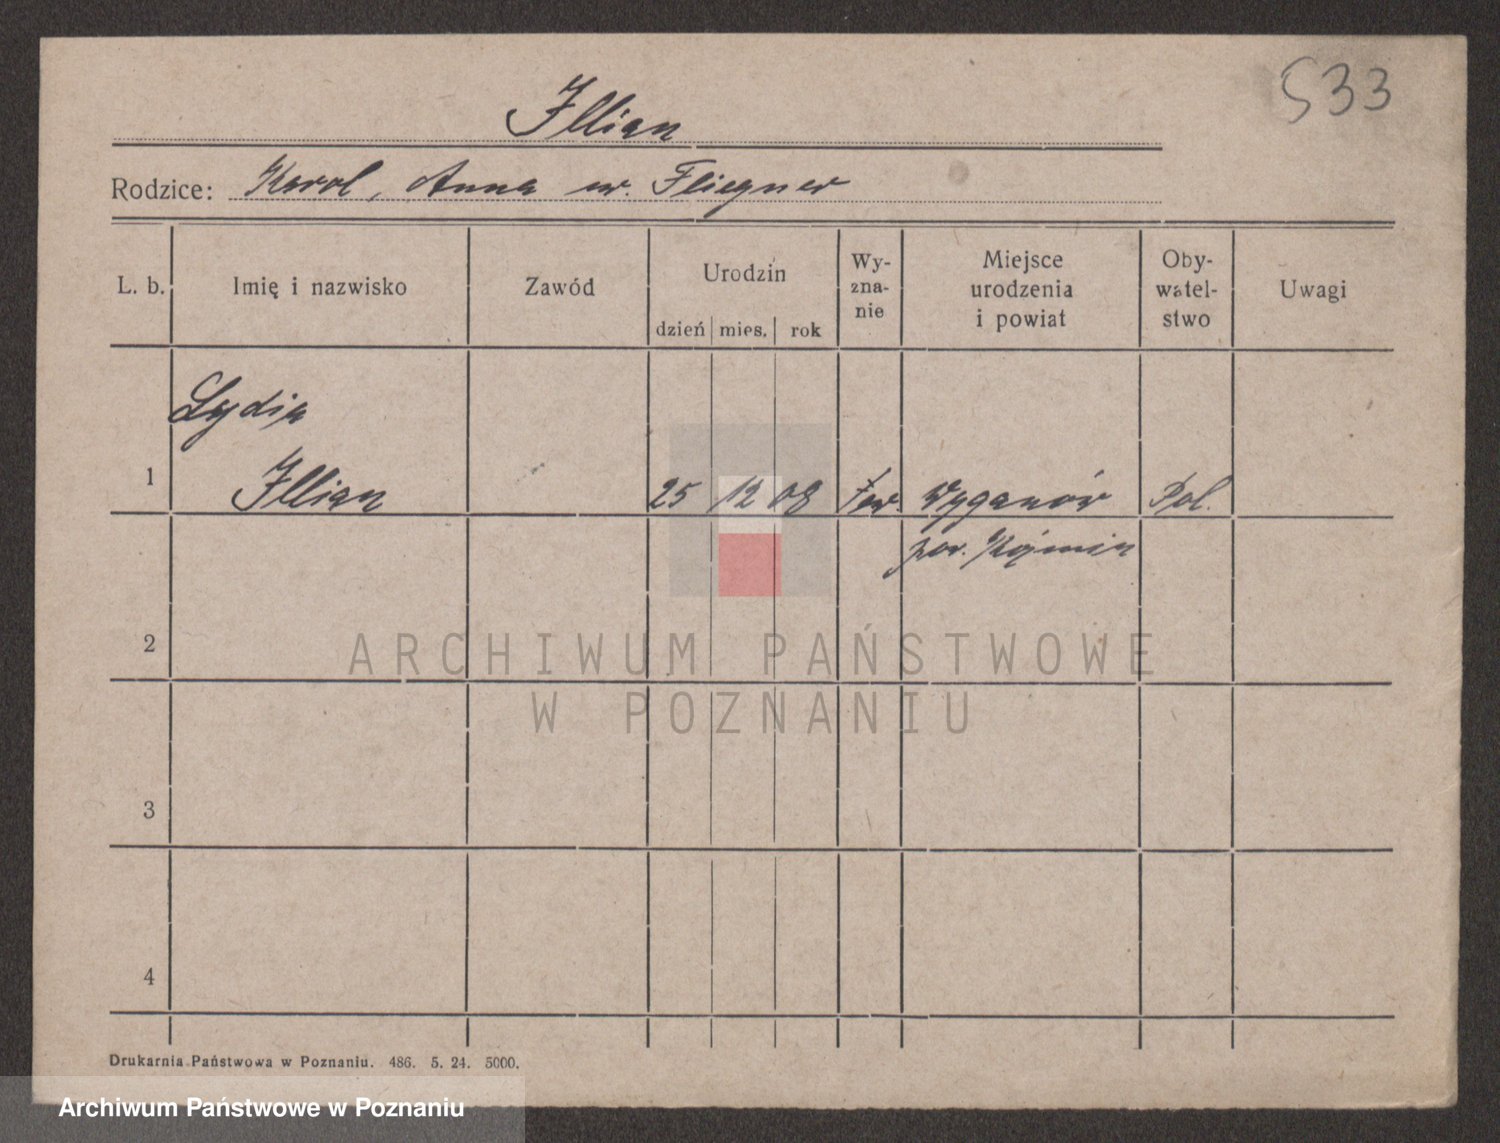 533
Illian
Rodzice: Karol, Anna ur. Fliegner
L. b.
Imię i nazwisko
Zawód
Urodzin
dzień mies. rok
Wy-
zna-
nie
Miejsce
urodzenia
i powiat
Oby-
watel-
stwo
Uwagi
Lydia
1 Illian 25 12 08 Ew. Wyganów Pol.
pow. Kojmin
2
ARCHIWUM PAŃSTWOWE
W POZNANIU
3
4
Drukarnia Państwowa w Poznaniu. 486. 5. 24. 5000.
Archiwum Państwowe w Poznaniu